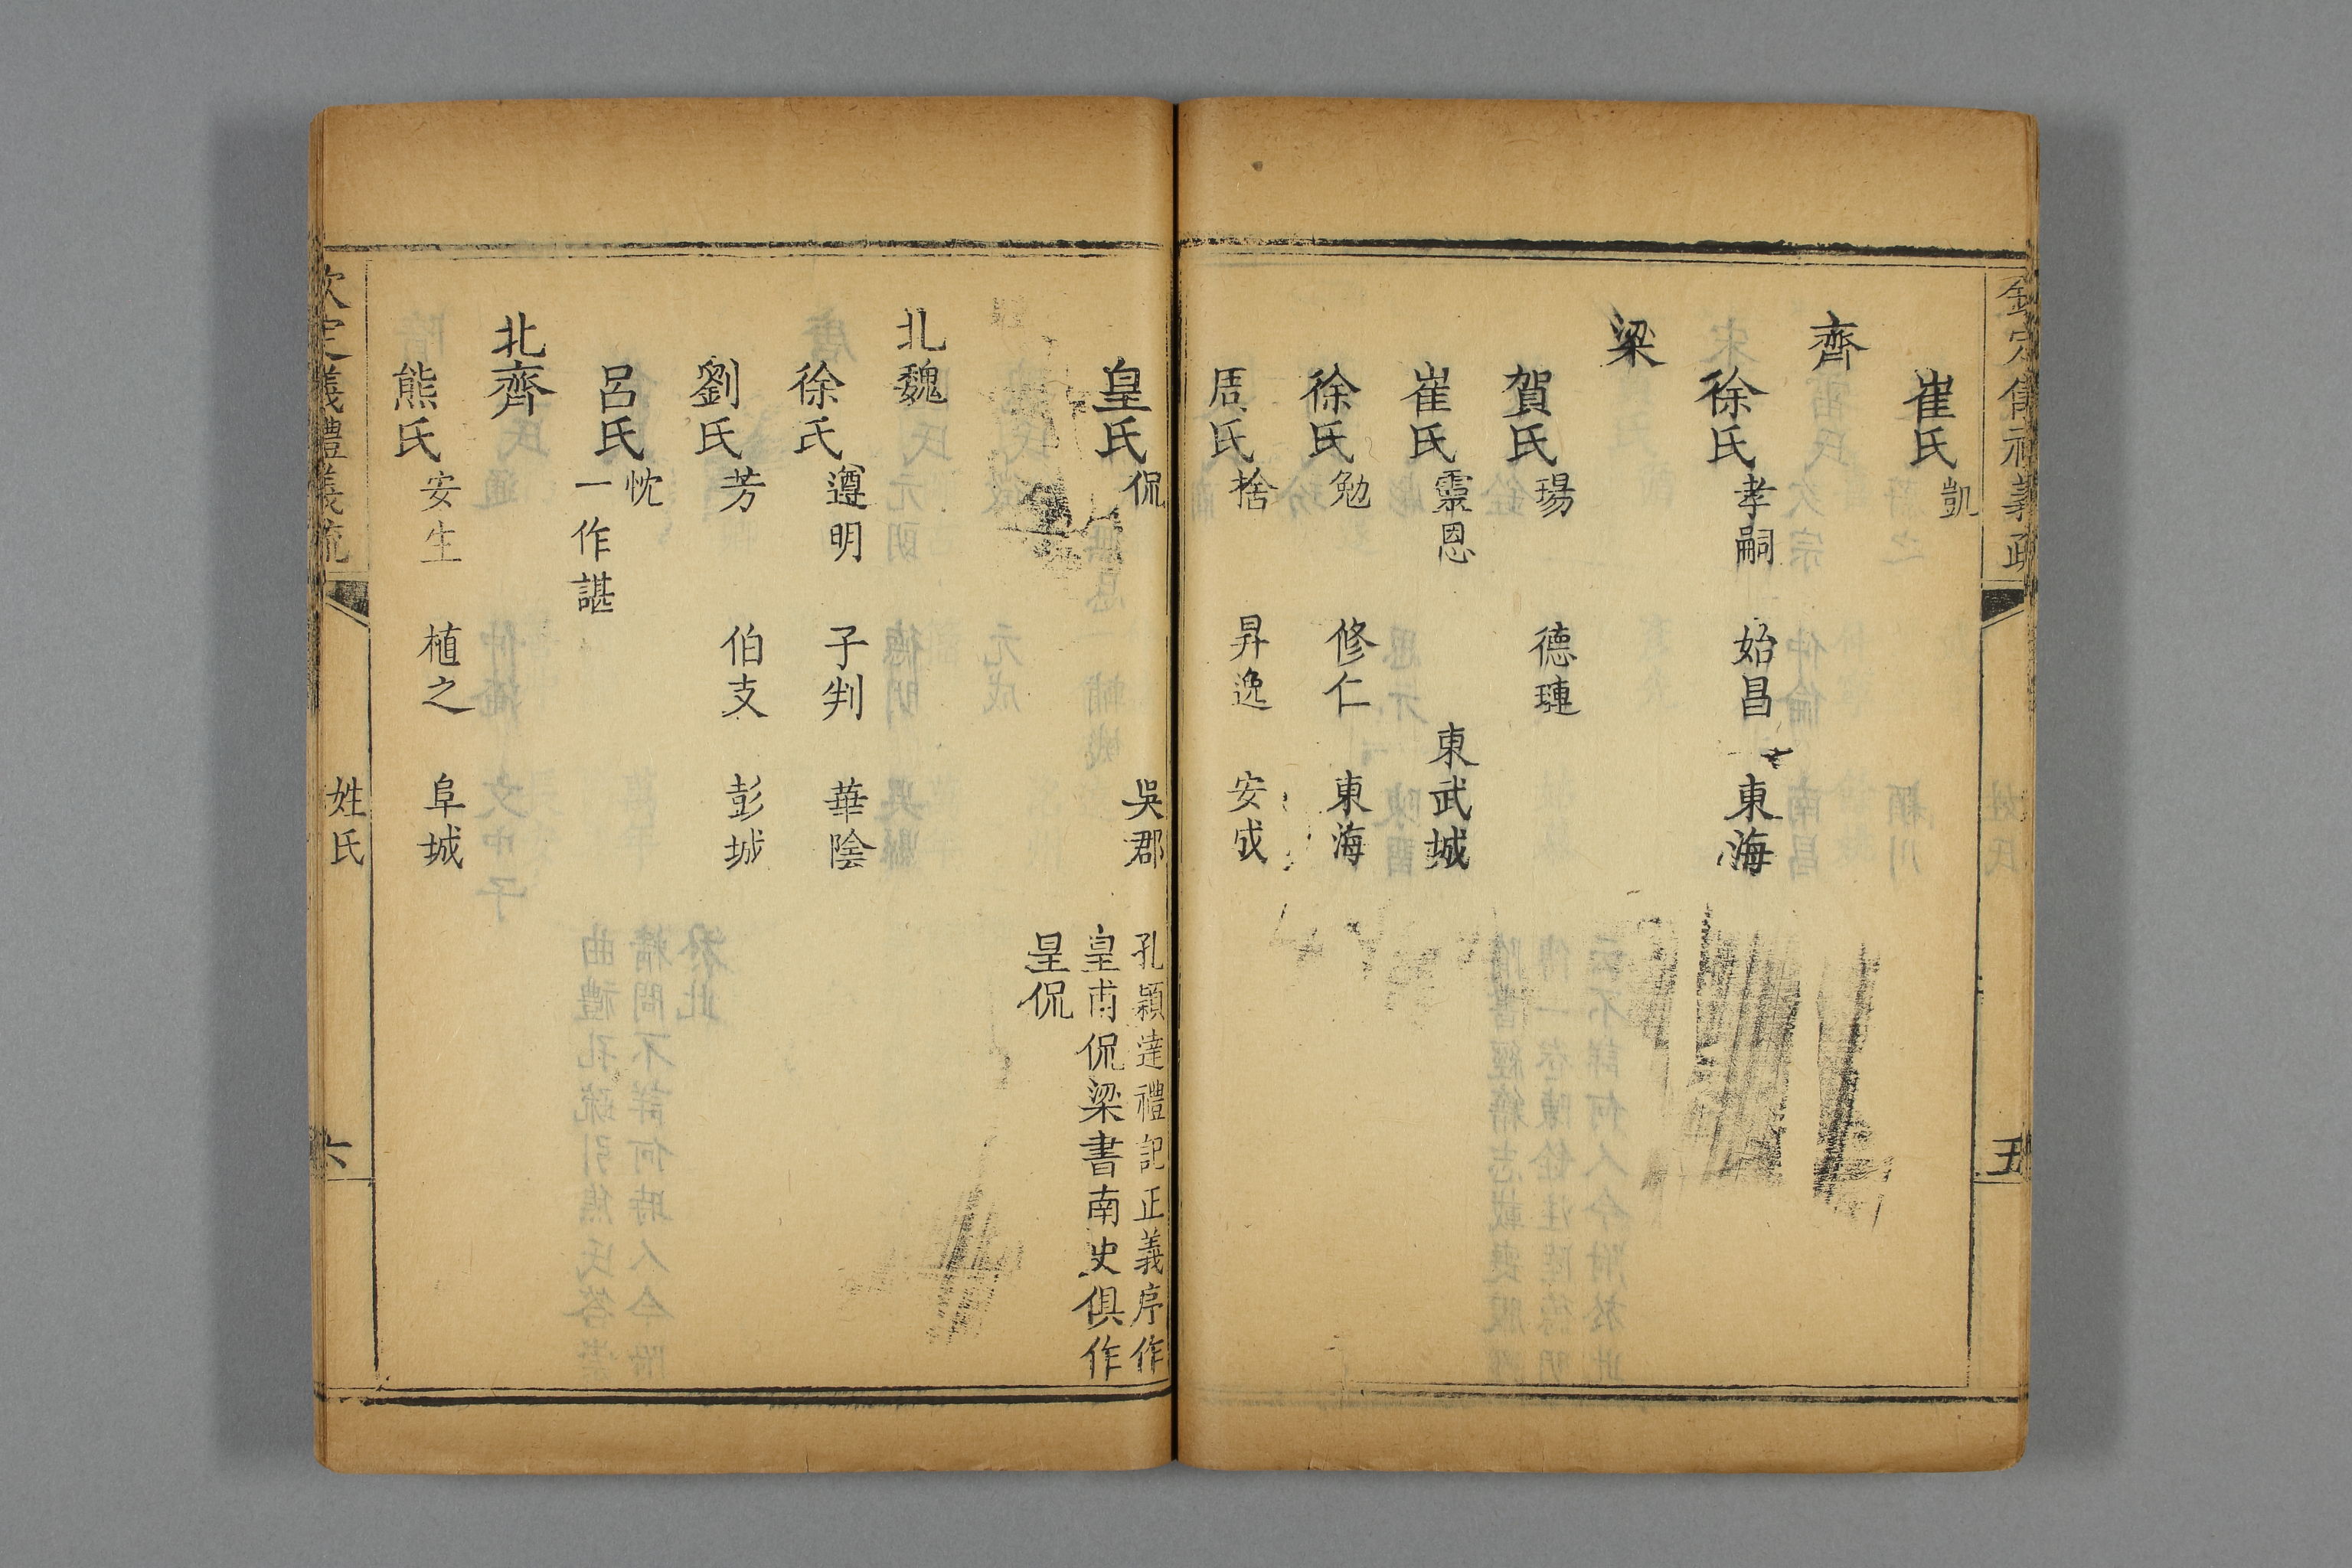 崔氏 凱
齊
徐氏 孝嗣 始昌 東海
梁
賀氏 瑒 德璉
崔氏 靈恩 東武城
徐氏 勉 修仁 東海
周氏 捨 昇逸 安成
五
皇氏 侃 吳郡 孔穎達禮記正義序作
皇甫侃梁書南史俱作
皇侃
北魏
徐氏 遵明 子判 華陰
劉氏 芳 伯支 彭城
呂氏 忱
一作諶
北齊
熊氏 安生 植之 阜城
欽定儀禮義疏 姓氏 六